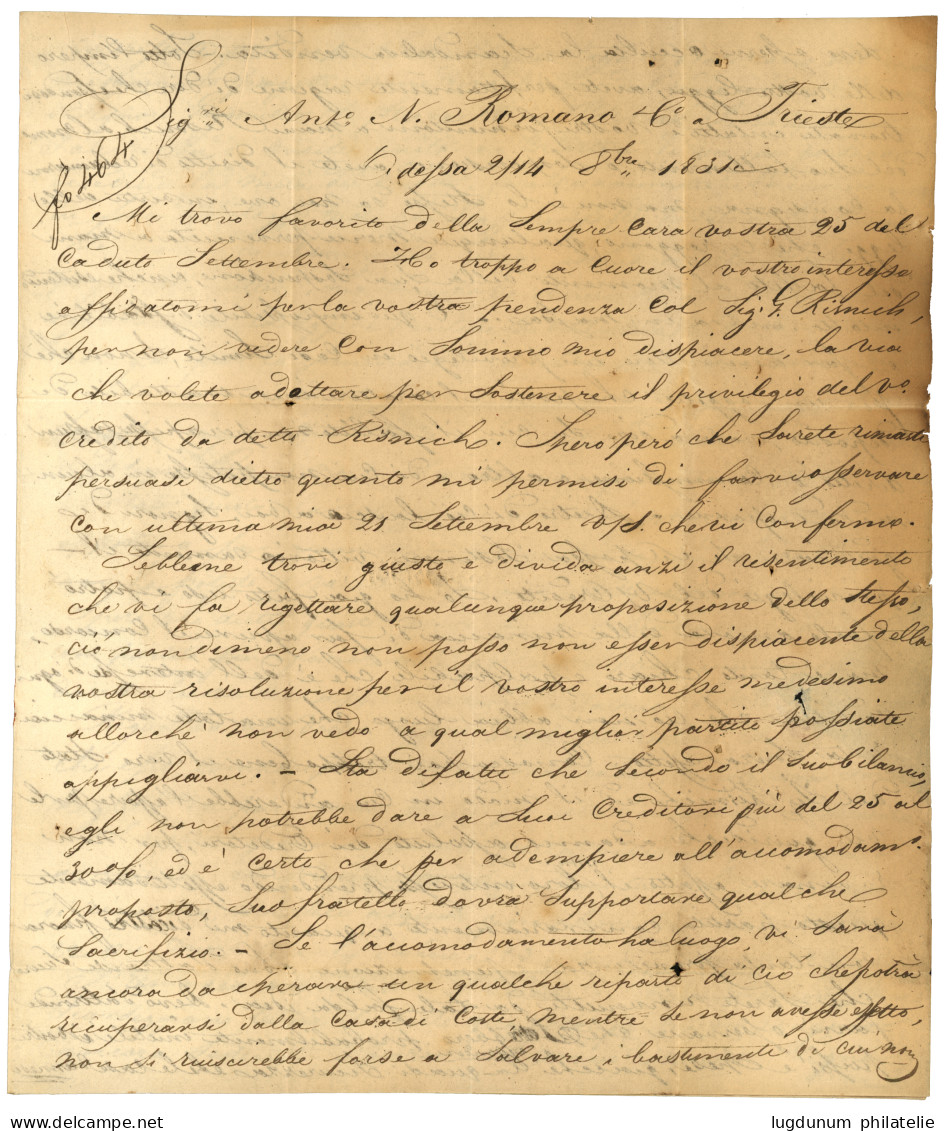 fo 464
Sig.ri Ant.o N. Romano & Co a Trieste
Odessa 2/14 8bre 1831
Mi trovo favorito della Sempre Cara vostra 25 del
Caduto Settembre. Ho troppo a Cuore il vostro interesse
affidatomi per la vostra pendenza Col Sig. G. Risnich,
per non vedere Con Sommo mio dispiacere, la via
che volete adottare per Sostenere il privilegio del vo.
Credito da detto Risnich. Spero peró che Sarete rimasti
persuasi dietro quanto mi permisi di farvi osservare
Con ultima mia 21 Settembre v/S. che vi Confermo.
Sebbene trovi giusto e divida anzi il risentimento
che vi fa rigettare qualunque proposizione dello Stesso,
ció nondimeno non posso non esser dispiacente della
vostra risoluzione per il vostro interesse medesimo
allorché non vedo a qual miglior partito possiate
appigliarvi. - Sta difatti che Secondo il Suo bilancio,
egli non potrebbe dare a Suoi Creditori piú del 25 al
30%, ed é Certo che per adempiere all'accomodam.o
proposto, Suo fratello dovrà Supportare qualche
Sacrifizio. - Se l'accomodamento ha luogo, vi Sarà
ancora da sperare un qualche riparto di Ció che potrà
ricuperarsi dalla Casa di Costì, mentre Se non avesse effetto,
non Si riuscirebbe forse a Salvare i bastimenti di cui non
lugdunum philatelie